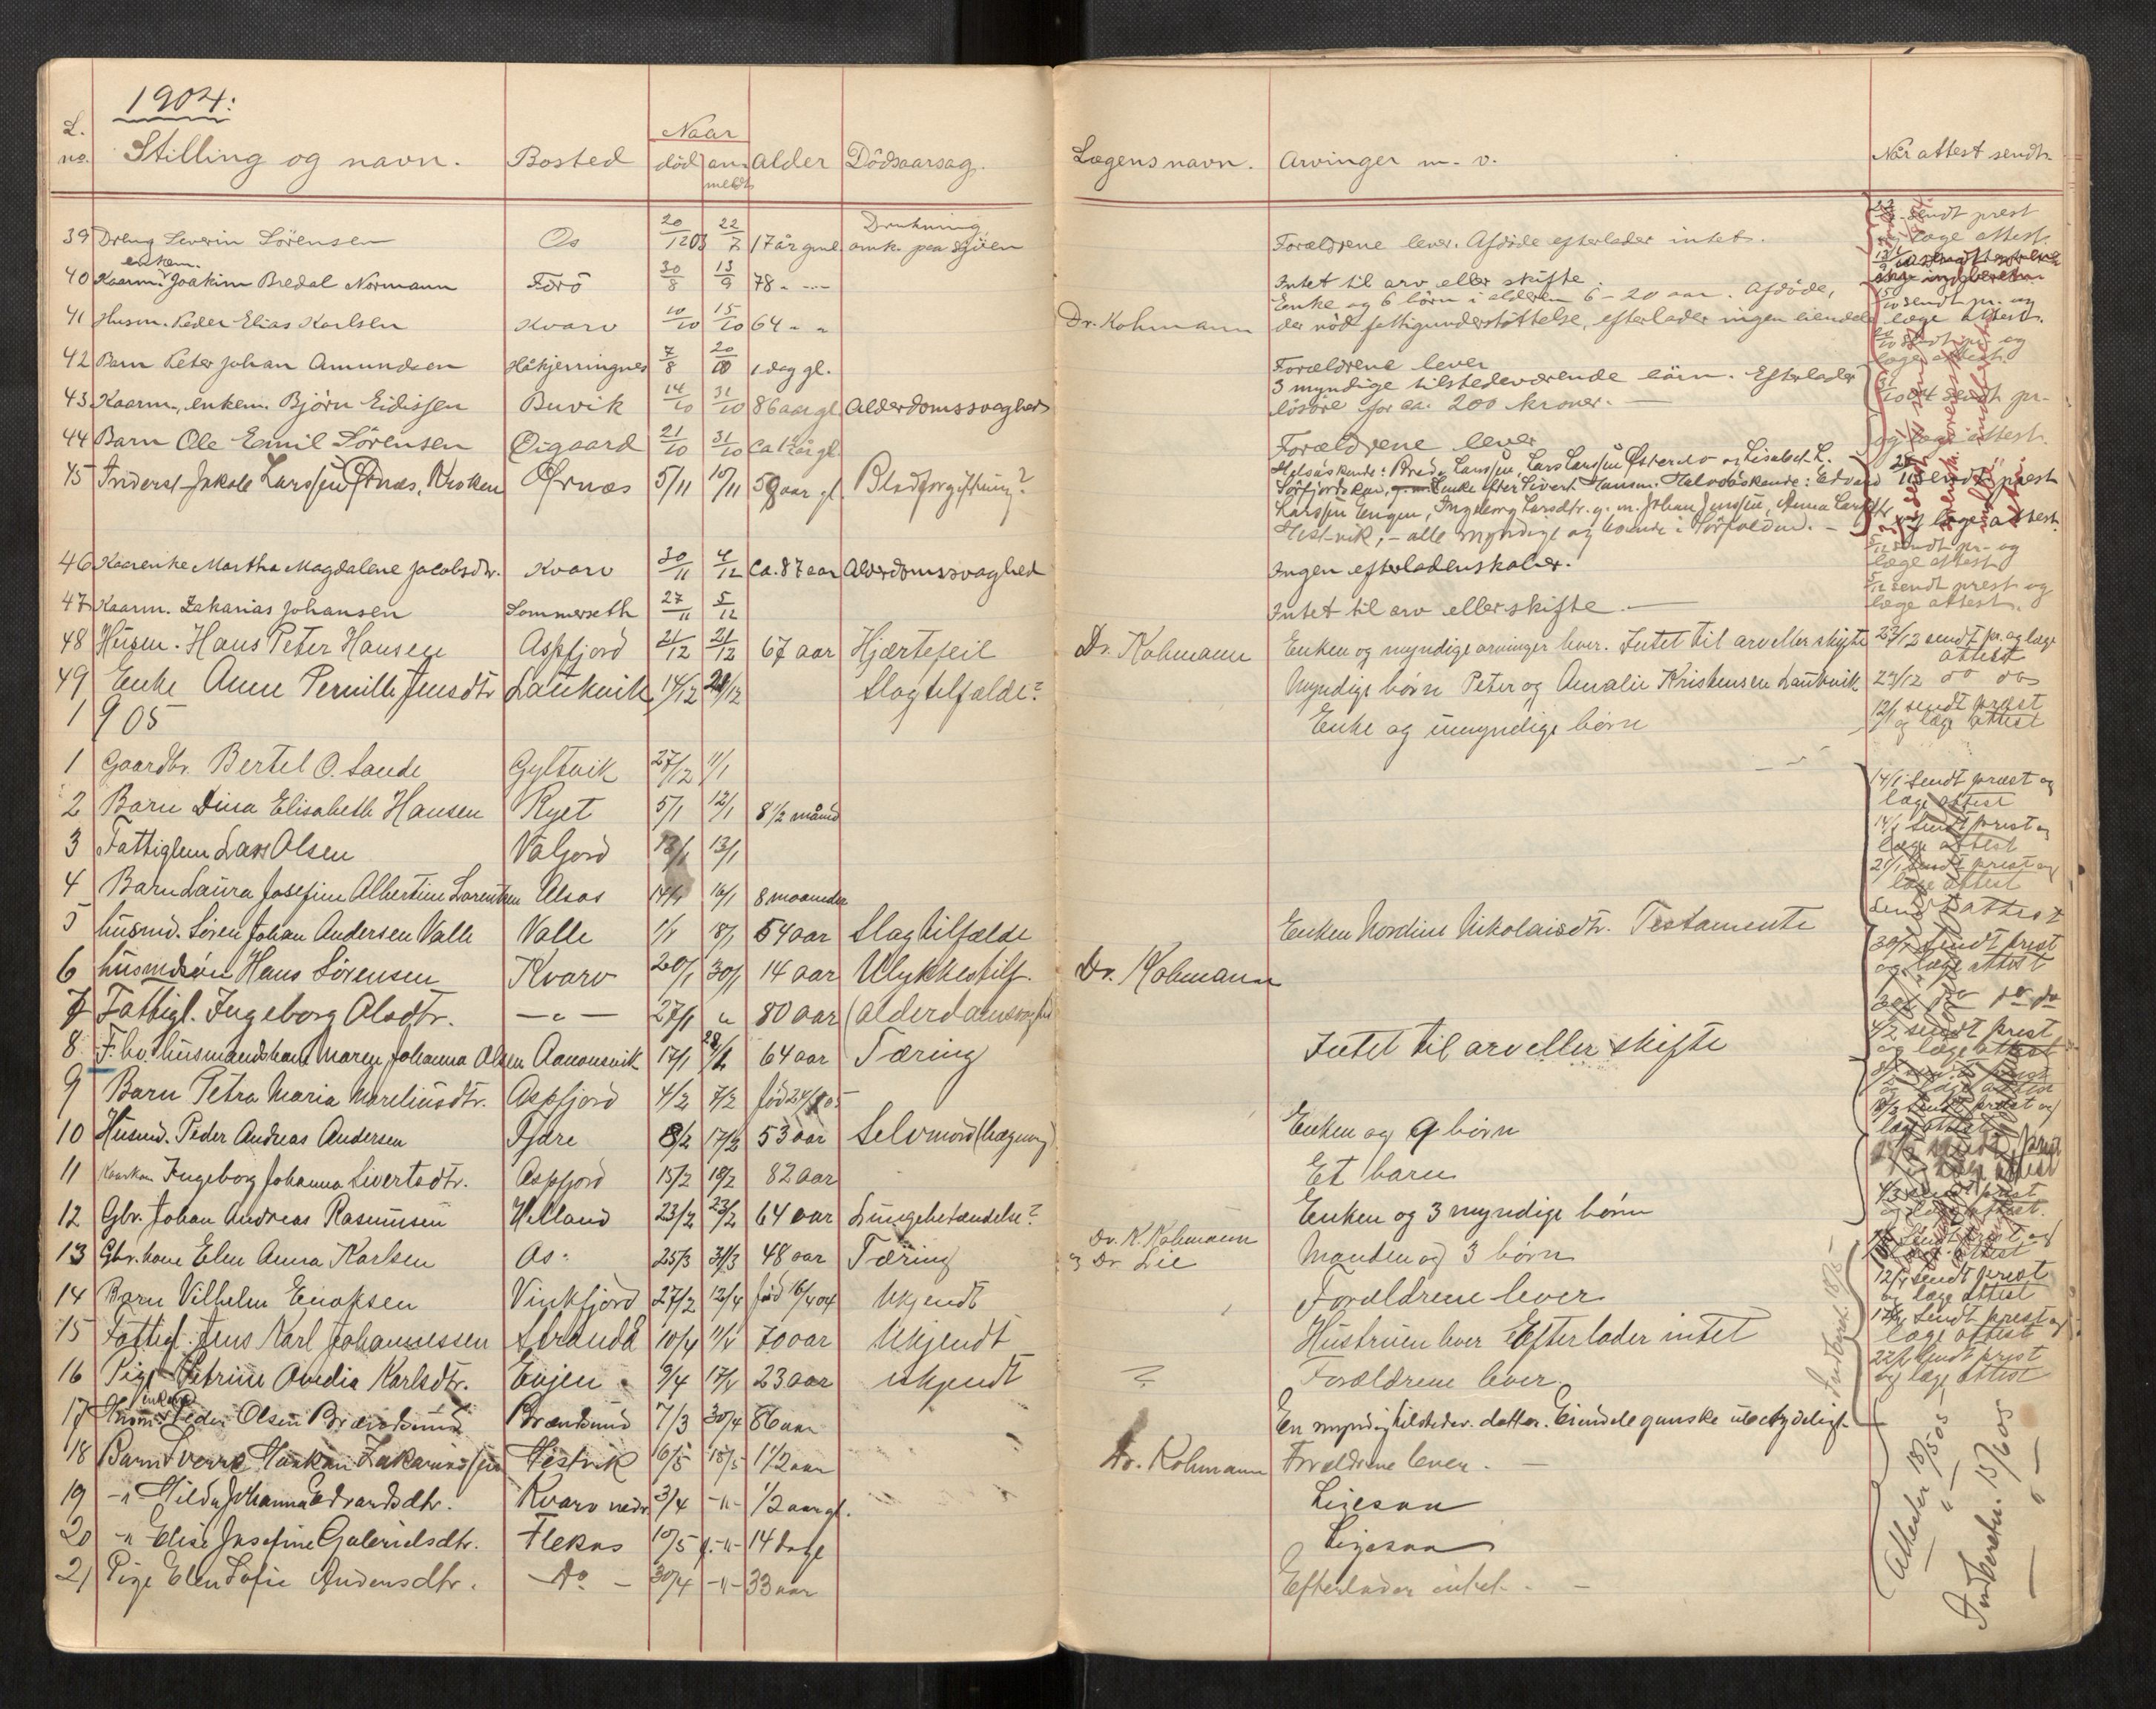 1904:
L. no. Stilling og navn. Bosted Naar død anmeldt alder Dödsaarsag. Lægens navn. Arvinger m. v. Når attest sendt
39 Dreng Severin Sörensen Os 20/12 03 22/7 17 år gml. Drukning omk. paa sjöen Forældrene lever. Afdöde efterlader intet. sendt prest og læge attest.
40 Kaarm. enkem. Joakim Bredal Normann Förö 30/8 13/9 78 " — Intet til arv eller skifte.
41 Husm. Peder Elias Karlsen Kvarv 10/10 15/10 64 " " Dr. Kohmann Enke og 6 börn i alderen 6-20 aar. Afdöde,
der nöd fattigunderstöttelse, efterlader ingen eiendele 15/10 sendt pr. og læge attest.
42 Barn Peter Johan Amundsen Håkjerringnes 7/8 20/10 1 dag gl. Forældrene lever 20/10 sendt pr. og læge attest.
43 Kaarm., enkem. Björn Eidissen Buvik 14/10 31/10 86 aar gl. Alderdomssvaghed 3 myndige tilstedeværende börn. Efterlader
lösöre for ca. 200 kroner. — 31/10 04 sendt pr.
44 Barn Ole Emil Sörensen Öigaard 21/10 31/10 Forældrene lever og læge attest.
45 Inderst Jakob Larssen Ørnæs, Kroken Ørnæs 5/11 10/11 59 aar gl. Blodforgiftning? Helsöskende: Larssen, Lars Larssen og Lisabet L.
enke efter Sivert Hansen. Halvsöskende: Edvard sendt prest
Larssen Engen, Ingeborg Larsdtr. g. m. Johan Jenssen, Anna Larsdtr
Hestvik, - alle myndige og boende i Sörfolden. — og læge attest.
46 Kaarenke Martha Magdalene Jacobsdtr. Kvarv 30/11 4/12 Ca. 87 aar Alderdomssvaghed Ingen efterladenskaber. 5/12 sendt pr. og læge attest
47 Kaarm. Zakarias Johansen Sommerseth 27/11 5/12 Intet til arv eller skifte — 5/12 sendt prest og læge attest.
48 Husm. Hans Peter Hansen Aspfjord 21/12 21/12 67 aar Hjærtefeil Dr. Kohmann Enken og myndige arvinger lever. Intet til arv eller skifte 23/12 sendt pr. og læge attest
49 Enke Anne Pernille Jensdtr Laukvik 14/12 21/12 Slagtilfælde? Myndige børn Peter og Amalie Kristensen Laukvik 23/12 do do
1905
Enke og umyndige børn 12/1 sendt præst og læge attest
1 Gaardbr. Bertel O. Sande Gyltvik 27/12 11/1
2 Barn Dina Elisabeth Hansen Ryet 5/1 12/1 8 1/2 månd 14/1 sendt præst og læge attest
3 Fattiglem Lars Olsen Valjord 13/1 13/1 14/1 sendt prest og læge attest
4 Barn Laura Josefine Albertine Lorentsen Alsos 14/1 16/1 8 maaneder 21/1 sendt prest og læge attest
5 husmd. Søren Johan Andersen Valle Valle 1/1 18/1 54 aar Slagtilfælde Enken Nordine Nikolaisdtr. Testamente Sendt attest
6 husmdsøn Hans Sørensen Kvarv 20/1 30/1 14 aar Ulykkestilf. Dr. Kohmann 30/1 sendt prest og læge attest
7 Fattigl. Ingeborg Olsdtr. — " — 27/1 " 80 aar (alderdomssvaghed
8 F. hv. husmandskone Maren Johanna Olsen Aanonsvik 17/1 64 aar Tæring Intet til arv eller skifte 4/2 sendt prest og læge attest
9 Barn Petra Maria Mareliusdtr. Aspfjord 4/2 7/2
10 Husmd. Peder Andreas Andersen Tjære 8/2 17/2 53 aar Selvmord (hægning) Enken og 9 børn
11 Ingeborg Johanna Sivertsdtr. Aspfjord 15/2 18/2 82 aar Et barn
12 Gbr. Johan Andreas Rasmussen Helland 23/2 23/2 64 aar Lungebetændelse? Enken og 3 myndige børn
13 Gbr. kone Elen Anna Karlsen Os 25/3 31/3 48 aar Tæring Dr. K. Kohmann og Dr Lie Manden og 3 børn
14 Barn Vilhelm Enoksen Vinkfjord 27/2 12/4 fød 16/4 04 Ukjendt Forældrene lever 12/4 sendt prest og læge attest
15 Fattigl. Jens Karl Johannessen Strandå 10/4 11/4 70 aar Ukjendt Hustruen lever Efterlader intet Sendt prest og læge attest
16 Pige Petrine Ovedia Karlsdtr. Evjen 9/4 17/4 23 aar ukjendt ? Forældrene lever 22/4 sendt prest og læge attest
17 Husm. enkem. Peder Olsen Brændsund Brændsund 7/3 30/4 86 aar En myndig tilstedev. datter. Eiendele ganske ubetydeligt
18 Barn Sverre Haakon Zakariassen Hestvik 16/5 18/5 1 1/2 aar Dr. Kohmann Forældrene lever. —
19 -"- Hilda Johanna Edvardsdtr. Kvarv nedr. 3/4 -"- 1/2 aar gl. Ligesaa
20 -"- Elise Josefine Gabrielsdtr. Flekas 10/5 -"- 14 dage Ligesaa
21 Pige Elen Sofie Andersdtr. Do — 30/4 -"- 33 aar Efterlader intet. —
Attester 18/5 05
Indberetn. 15/6 05